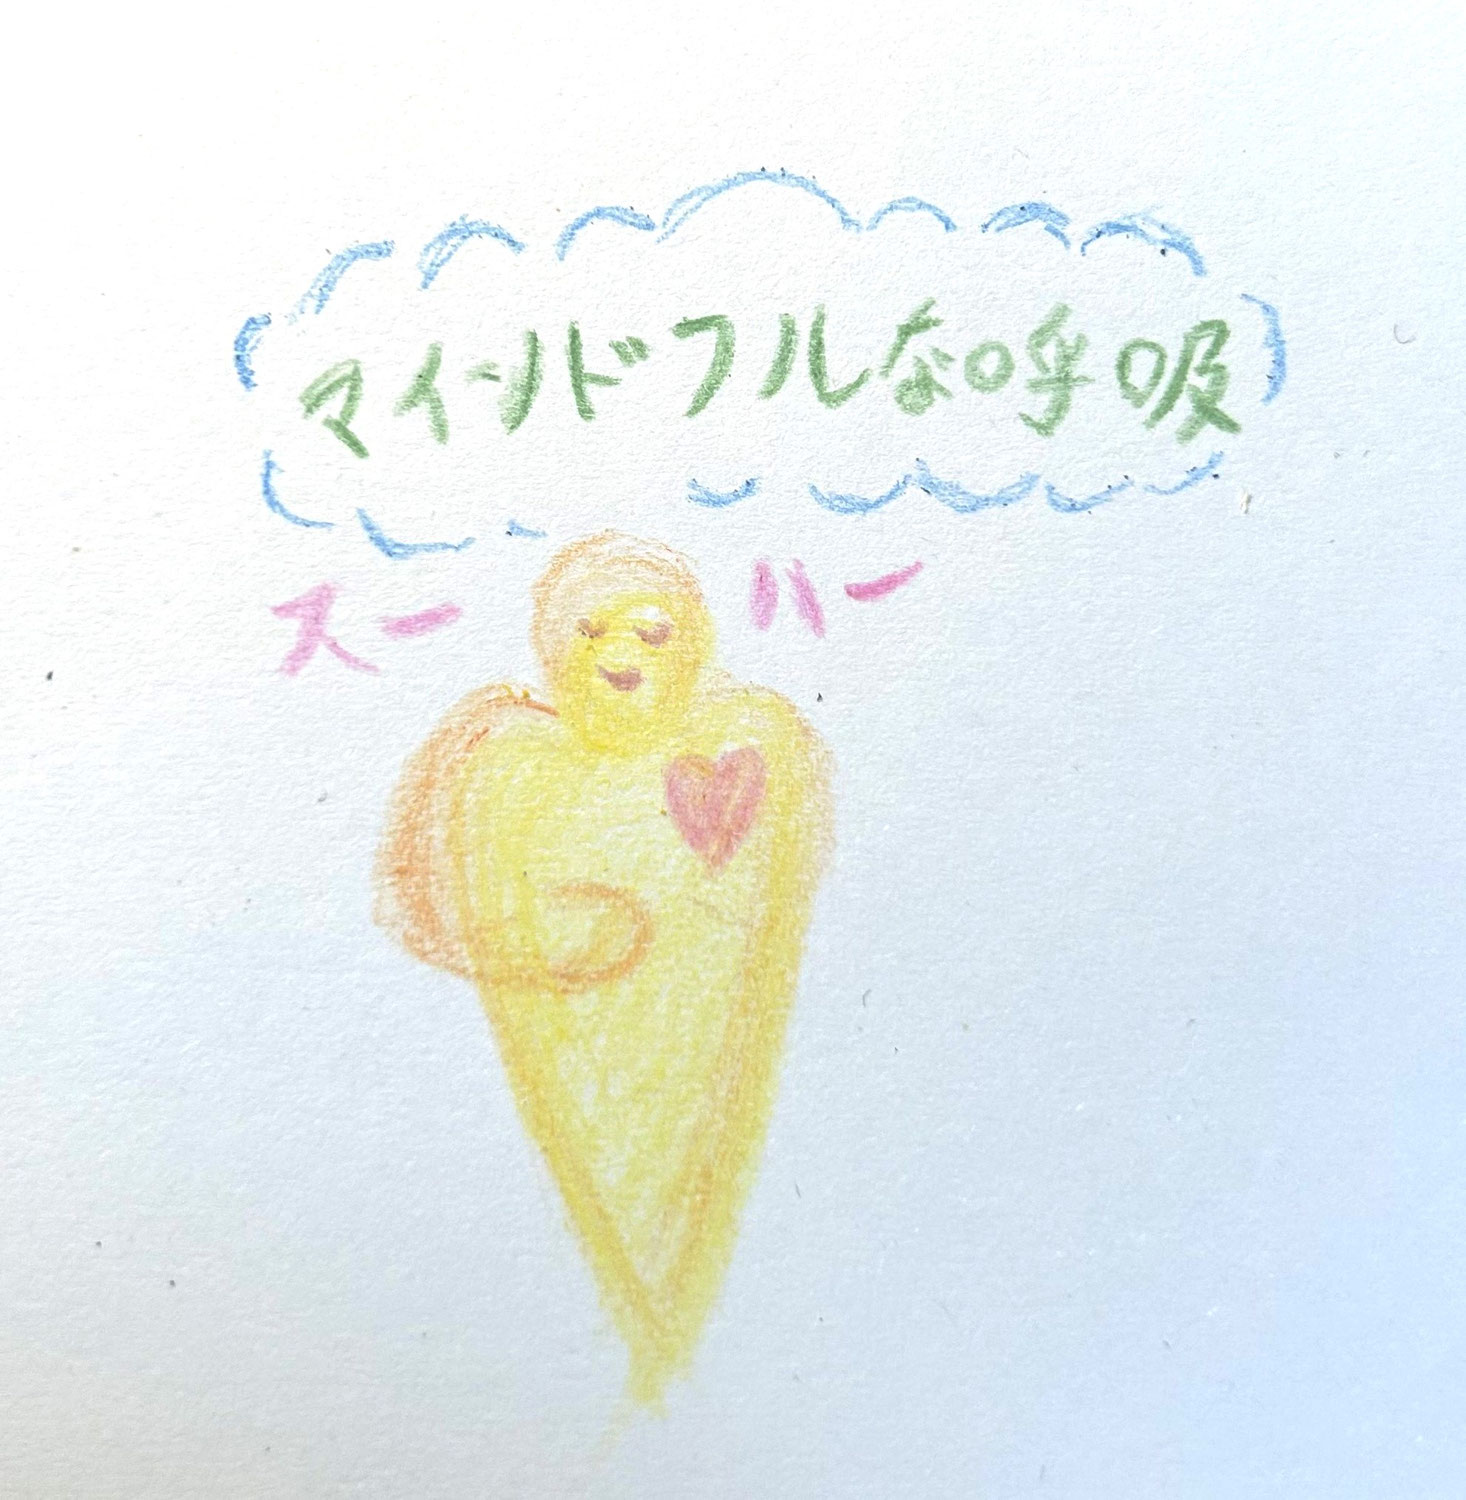 マインドフルな呼吸
スー ハー